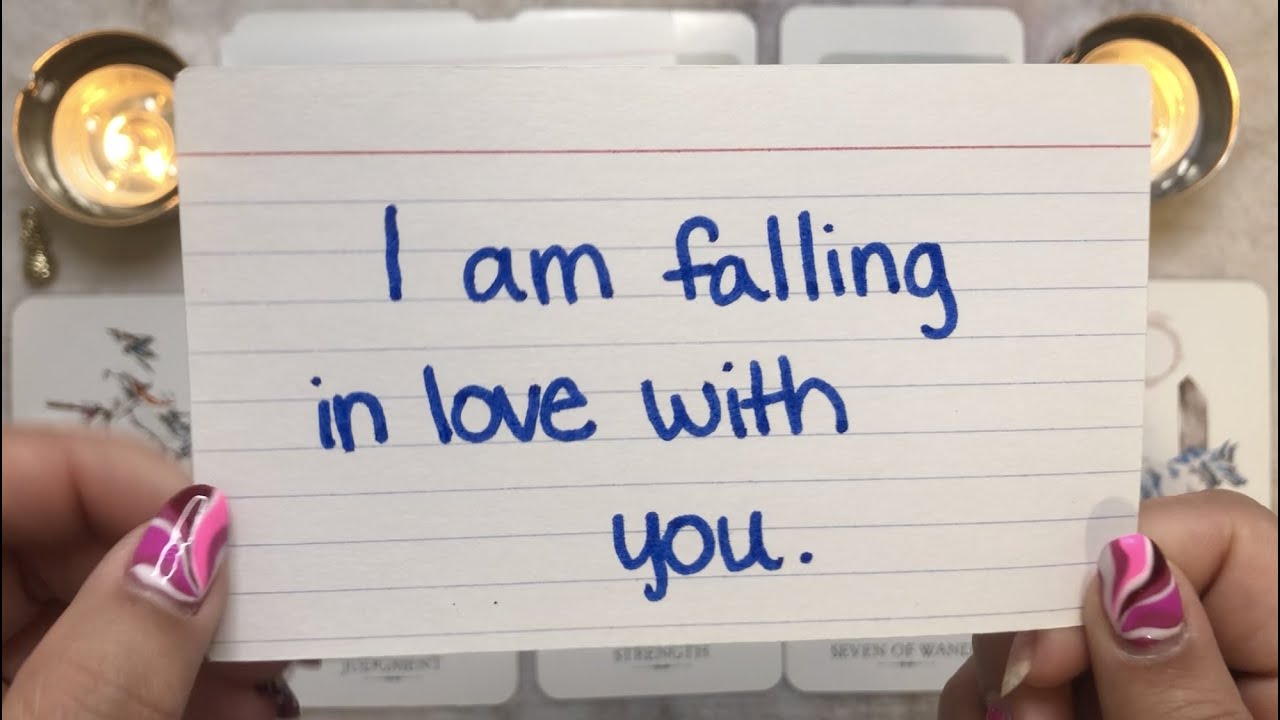 I am falling
in love with
you.
JUDGMENT
STRENGTH
SEVEN OF WAND